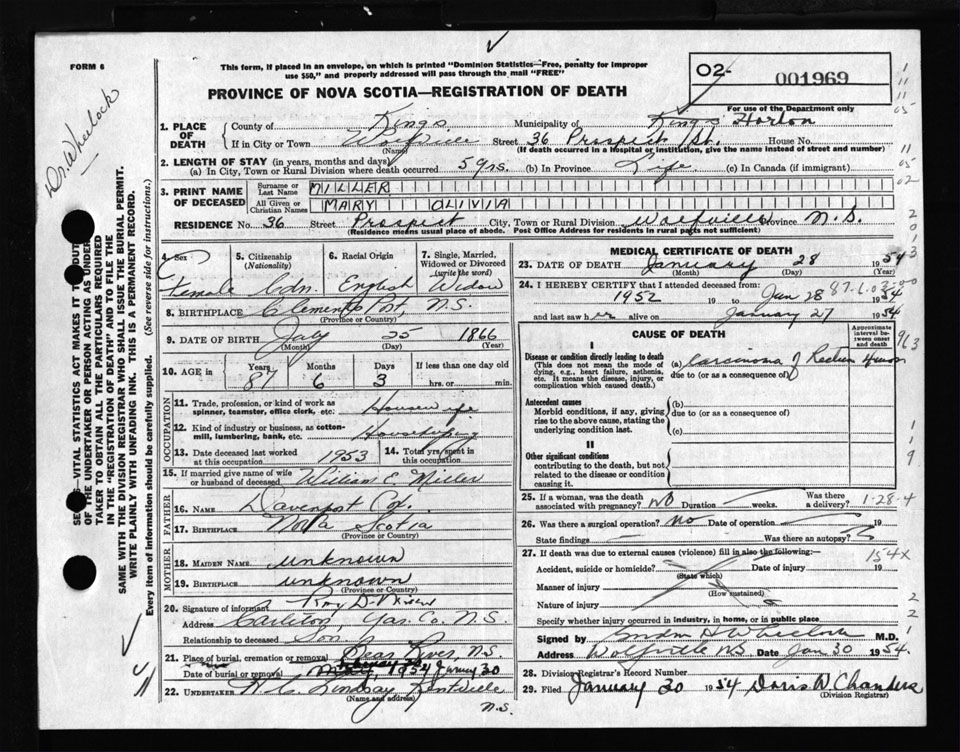 FORM 6
This form, if placed in an envelope, on which is printed "Dominion Statistics—Free, penalty for improper
use $50," and properly addressed will pass through the mail "FREE"
02- 001969
PROVINCE OF NOVA SCOTIA—REGISTRATION OF DEATH
For use of the Department only
Dr. Wheelock
1. PLACE OF DEATH County of Kings Municipality of Kings Horton
If in City or Town Wolfville Street 36 Prospect St. House No.
(Name) (If death occurred in a hospital or institution, give the name instead of street and number)
2. LENGTH OF STAY (in years, months and days)
(a) In City, Town or Rural Division where death occurred 5 yrs. (b) In Province Life (c) In Canada (if immigrant)
3. PRINT NAME OF DECEASED Surname or Last Name MILLER
All Given or Christian Names MARY OLIVIA
RESIDENCE No. 36 Street Prospect City, Town or Rural Division Wolfville Province N.S.
(Residence means usual place of abode. Post Office Address for residents in rural parts not sufficient)
SEC. —VITAL STATISTICS ACT MAKES IT THE DUTY
OF THE UNDERTAKER OR PERSON ACTING AS UNDERTAKER TO OBTAIN ALL THE PARTICULARS REQUIRED
IN THE "REGISTRATION OF DEATH" AND TO FILE THE
SAME WITH THE DIVISION REGISTRAR WHO SHALL ISSUE THE BURIAL PERMIT.
WRITE PLAINLY WITH UNFADING INK. THIS IS A PERMANENT RECORD.
Every item of information should be carefully supplied. (See reverse side for instructions.)
4. Sex Female
5. Citizenship (Nationality) Cdn.
6. Racial Origin English
7. Single, Married, Widowed or Divorced (write the word) Widow
8. BIRTHPLACE Clementsport, N.S.
(Province or Country)
9. DATE OF BIRTH July 25 1866
(Month) (Day) (Year)
10. AGE in Years 87 Months 6 Days 3 If less than one day old
hrs. or min.
OCCUPATION
11. Trade, profession or kind of work as spinner, teamster, office clerk, etc. Housewife
12. Kind of industry or business, as cotton-mill, lumbering, bank, etc. Housekeeping
13. Date deceased last worked at this occupation 1953 14. Total yrs. spent in this occupation
15. If married give name of wife or husband of deceased William C Miller
FATHER
16. Name Davenport Cox.
17. Birthplace Nova Scotia
(Province or Country)
MOTHER
18. Maiden Name unknown
19. Birthplace unknown
(Province or Country)
20. Signature of informant Roy D. Miller
Address Carleton, Yar. Co. N.S.
Relationship to deceased Son
21. Place of burial, cremation or removal Bear River, N.S.
Date of burial or removal 1954 January 30
22. Undertaker W. C. Lindsay, Kentville
(Name and address)
N.S.
MEDICAL CERTIFICATE OF DEATH
23. DATE OF DEATH January 28 1954
(Month) (Day) (Year)
24. I HEREBY CERTIFY that I attended deceased from:
1952 19 to Jan 28 1954
and last saw her alive on January 27 1954
CAUSE OF DEATH
Approximate interval between onset and death
I
Disease or condition directly leading to death (a) Carcinoma of Rectum
(This does not mean the mode of dying, e.g., heart failure, asthenia, etc. It means the disease, injury, or complication which caused death.)
due to (or as a consequence of)
Antecedent causes (b)
Morbid conditions, if any, giving rise to the above cause, stating the underlying condition last.
due to (or as a consequence of)
(c)
II
Other significant conditions
contributing to the death, but not related to the disease or condition causing it.
25. If a woman, was the death associated with pregnancy? NO Duration weeks. Was there a delivery?
1-28-4
26. Was there a surgical operation? No Date of operation 19
State findings Was there an autopsy?
27. If death was due to external causes (violence) fill in also the following:—
154X
Accident, suicide or homicide? Date of injury 19
(State which)
Manner of injury
(How sustained)
Nature of injury
Specify whether injury occurred in industry, in home, or in public place
Signed by Wheelock M.D.
Address Wolfville NS. Date Jan 30 1954.
28. Division Registrar's Record Number
29. Filed January 30 1954 Doris W. Chanders
(Division Registrar)